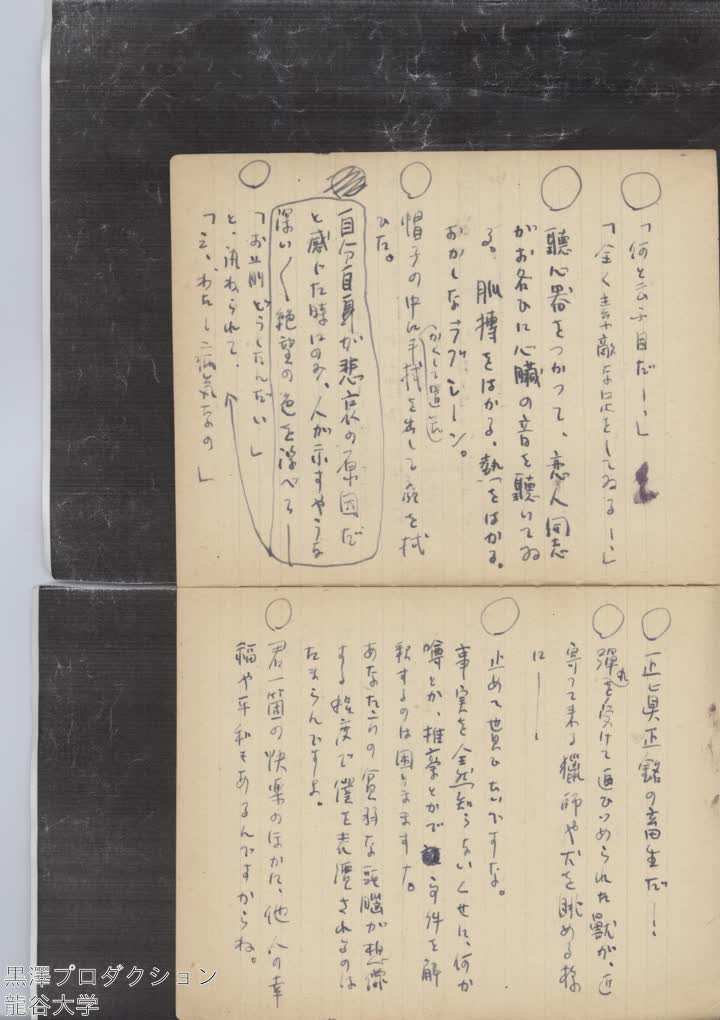 「何と云ふ目だ――」
「全く素敵な目をしてゐる――」
聴心器をつかつて、恋人同志
がお各ひに心臓の音を聴いてゐ
る。脈搏をはかる、熱をはかる。
おかしなラブシーン。
帽子の中に
かくして置いた
手拭を出して顔を拭
ひた。
自分自身が悲哀の原因だ
と感じた時にのみ、人が示すやうな
深い〱絶望の色を浮べて――
「お前どうしたんだい」
と、訊ねられて、
「えゝ、わたし病気なの」
正真正銘の畜生だ――
弾丸を受けて追ひつめられた獣が、近
寄つて来る猟師や犬を眺める様
に――
止めて貰ひたいですな。
事実を全然知らないくせに、何か
噂とか、推察とかで事件を解
釈するのは困りますナ。
あなた方の貧弱な頭脳が想像
する程度で僕を表価されるのは
たまらんですよ。
君一箇の快楽のほかに、他人の幸
福や平和もあるんですからね。
黒澤プロダクション
龍谷大学